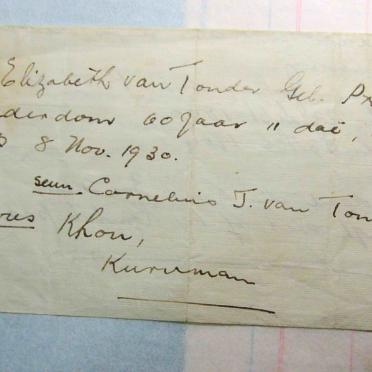 Elizabeth van Tonder Geb. Pr
derdom 60 jaar 11 daë,
8 Nov. 1930.
seun. Cornelius J. van Ton
res Khon,
Kuruman